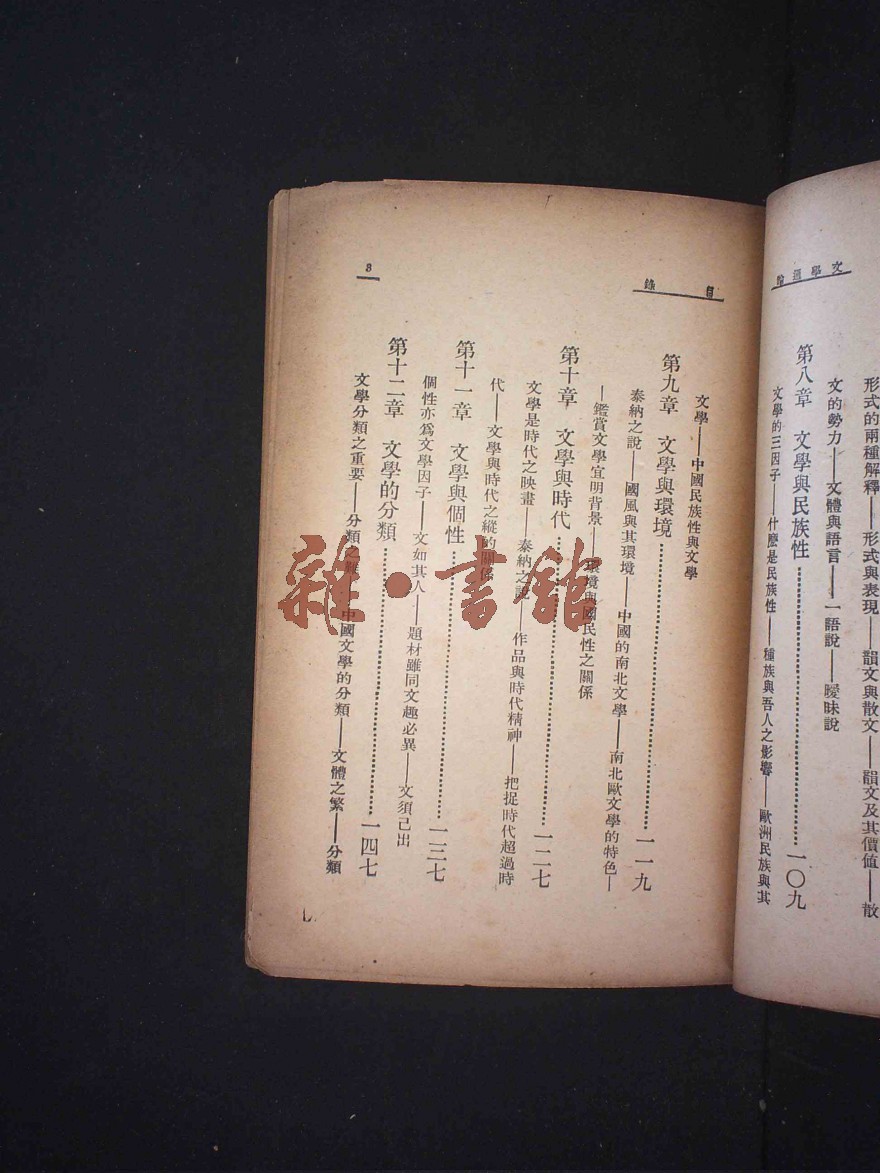 文學通論
形式的兩種解釋——形式與表現——韻文與散文——韻文及其價值——散
文的勢力——文體與語言——一語說——曖昧說
第八章　文學與民族性…………一〇九
文學的三因子——什麼是民族性——種族與吾人之影響——歐洲民族與其
目錄
文學——中國民族性與文學
第九章　文學與環境…………一一九
泰納之說——國風與其環境——中國的南北文學——南北歐文學的特色—
—鑑賞文學宜明背景——環境與國民性之關係
第十章　文學與時代…………一二七
文學是時代之映畫——泰納之說——作品與時代精神——把捉時代超過時
代——文學與時代之縱的關係
第十一章　文學與個性…………一三七
個性亦爲文學因子——文如其人——題材雖同文趣必異——文須己出
第十二章　文學的分類…………一四七
文學分類之重要——分類之難——中國文學的分類——文體之繁——分類
3
雜·書館